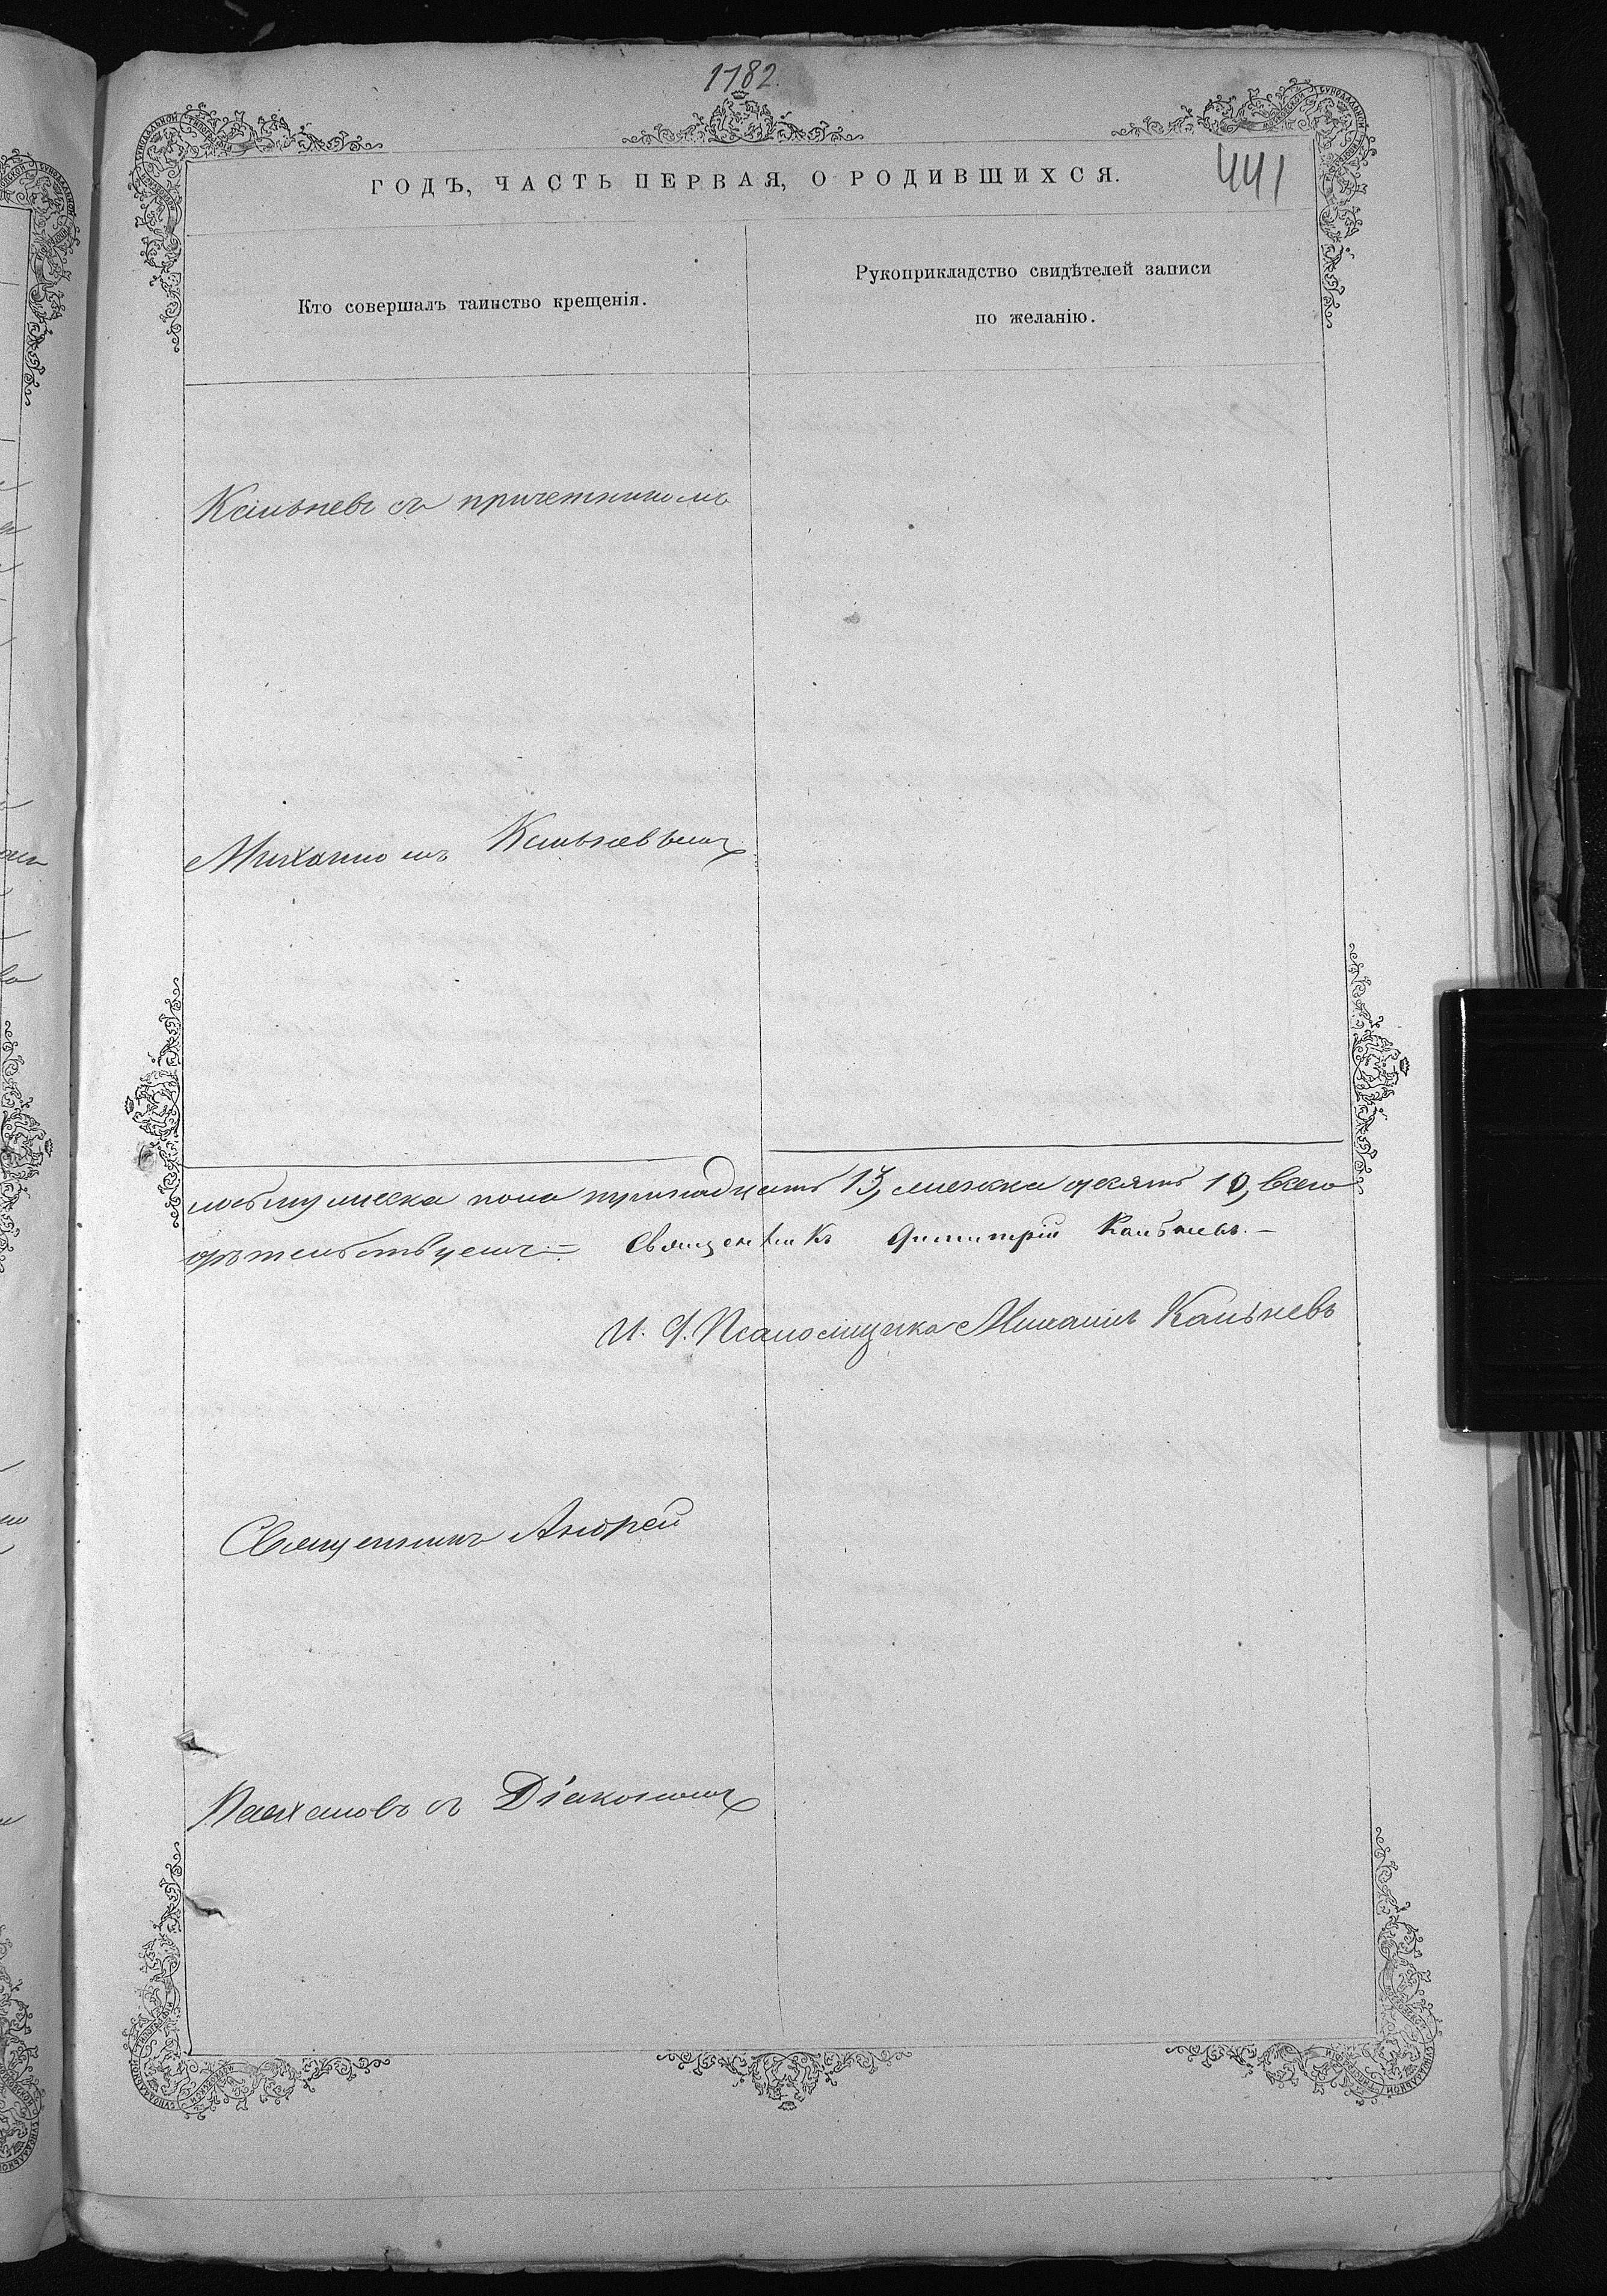 1182.
441
ГОДЪ, ЧАСТЬ ПЕРВАЯ, О РОДИВШИХСЯ.
Кто совершалъ таинство крещенія.
Рукоприкладство свидѣтелей записи
по желанію.
Кальневъ съ причетникомъ
Михаиломъ Кальневымъ
мужеска пола тринадцать 13, женска десять 10, всего
Священникъ Димитрій Кальневъ.
И. д. Псаломщика Михаилъ Кальневъ
Священникъ Андрей
съ Діакономъ